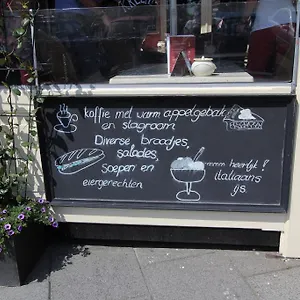 koffie met warm appelgebak
en slagroom
Diverse broodjes,
salades,
Soepen en
eiergerechten
mmm heerlijk!
italiaans
ijs.